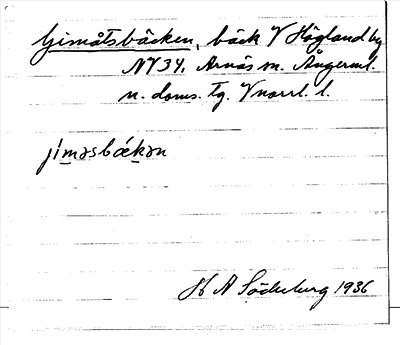 Gimåtsbäcken, bäck V Högland by
NV34, Arnäs sn. Ångerml.
n. doms. tg. Vnorrl. l.
jiməsbækən
H A Söderberg 1936